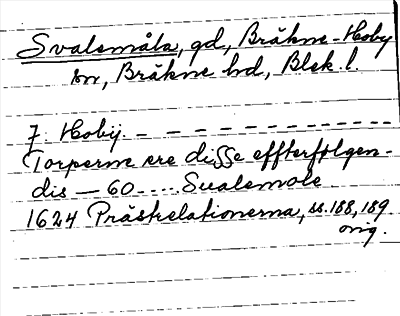 Svalemåla, gd, Bräkne-Hoby
sn, Bräkne hd, Blek. l.
J Hobÿ. – – – – – – – – – – – –
Torperne ere disse effterfølgen-
dis — 60 .... Sualemole
1624 Prästrelationerna, ss. 188, 189
orig.